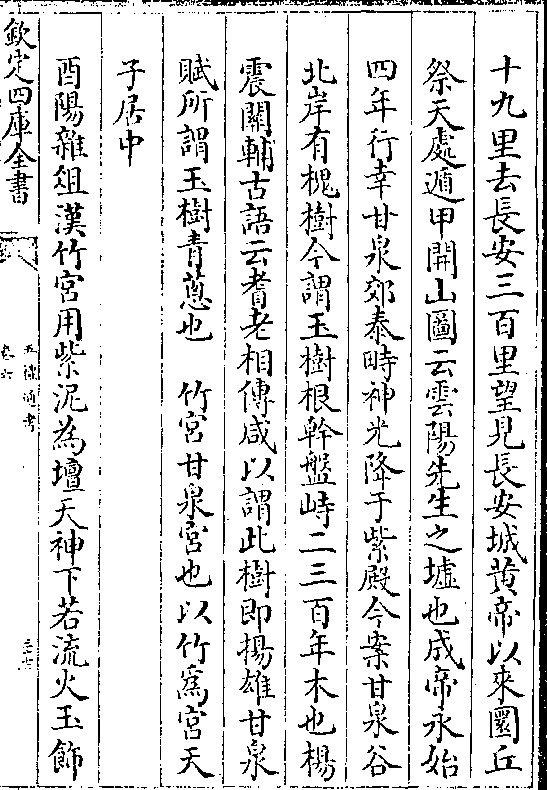 十九里去長安三百里望見長安城黄帝以來圜丘
祭天處遁甲開山圖云雲陽先生之墟也成帝永始
四年行幸甘泉郊泰畤神光降于紫殿今案甘泉谷
北岸有槐樹今謂玉樹根幹盤峙二三百年木也楊
震關輔古語云耆老相傳咸以謂此樹即揚雄甘泉
賦所謂玉樹青蔥也　竹宮甘泉宮也以竹爲宮天
子居中
酉陽雜俎漢竹宮用紫泥為壇天神下若流火玉飾
欽定四庫全書
五禮通考
卷六
三十二